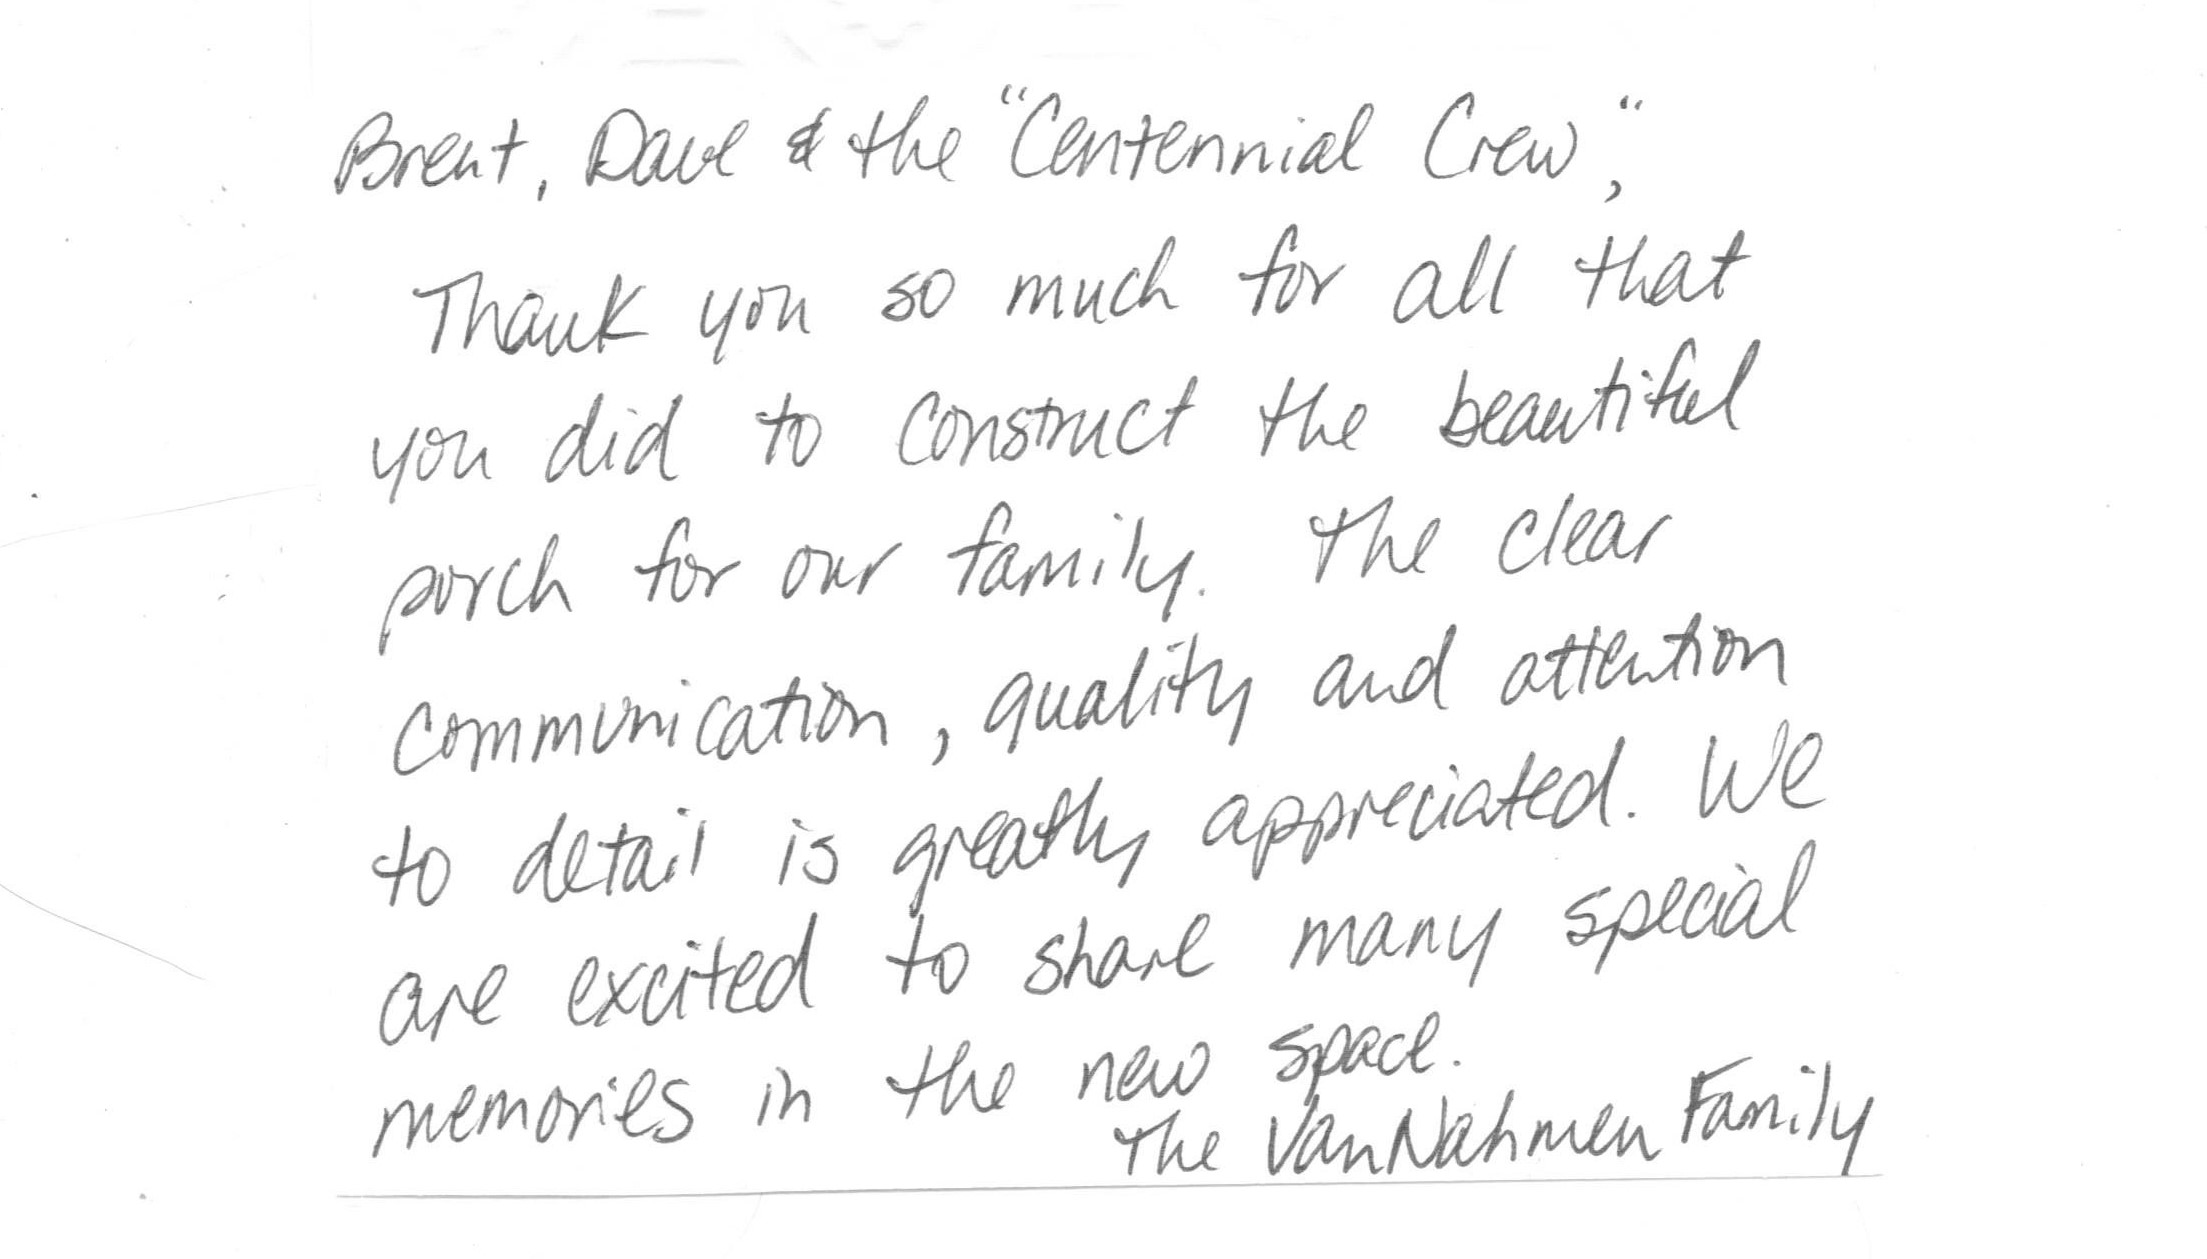 Brent, Dave & the "Centennial Crew",
Thank you so much for all that
you did to construct the beautiful
porch for our family. The clear
communication, quality and attention
to detail is greatly appreciated. We
are excited to share many special
memories in the new space.
The VanNahmen Family